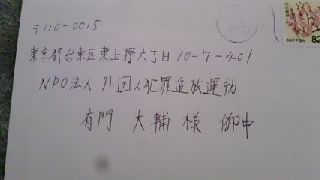 〒110-0015
東京都台東区東上野六丁目10-7-401
NPO法人 外国人犯罪追放運動
有門 大輔 様 御中
82